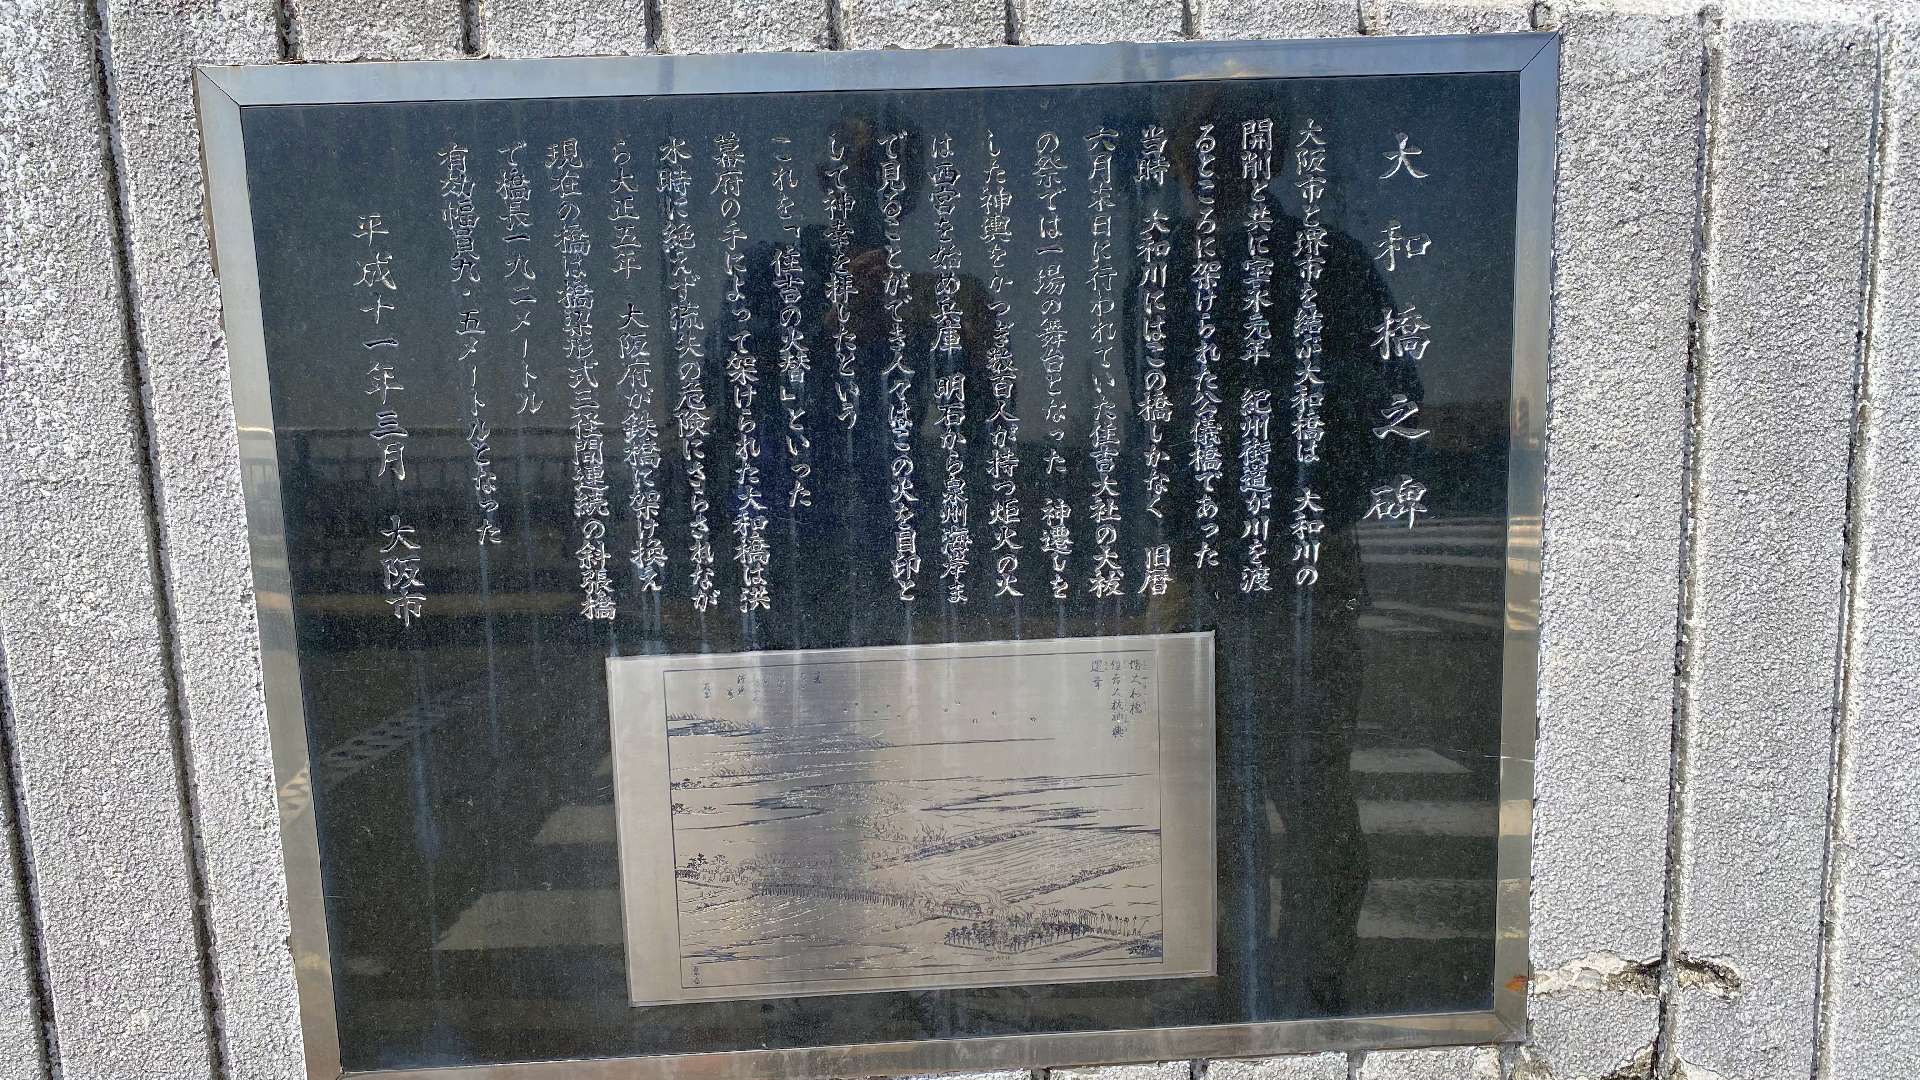 大和橋之碑
大阪市と堺市を結ぶ大和橋は 大和川の
開削と共に宝永元年 紀州街道が川を渡
るところに架けられた公儀橋であった
当時 大和川にはこの橋しかなく 旧暦
六月末日に行われていた住吉大社の大祓
の祭では一場の舞台となった 神遷しを
した神輿をかつぎ数百人が持つ炬火の火
は西宮を始め兵庫 明石から泉州海岸ま
で見ることができ人々はこの火を目印と
して神幸を拝したという
これを「住吉の火替」といった
幕府の手によって架けられた大和橋は洪
水時に絶えず流失の危険にさらされなが
ら大正五年 大阪府が鉄橋に架け換え
現在の橋は橋梁形式三径間連続の斜張橋
で橋長一九二メートル
有効幅員九・五メートルとなった
平成十一年三月 大阪市
住吉大祓神輿
還幸